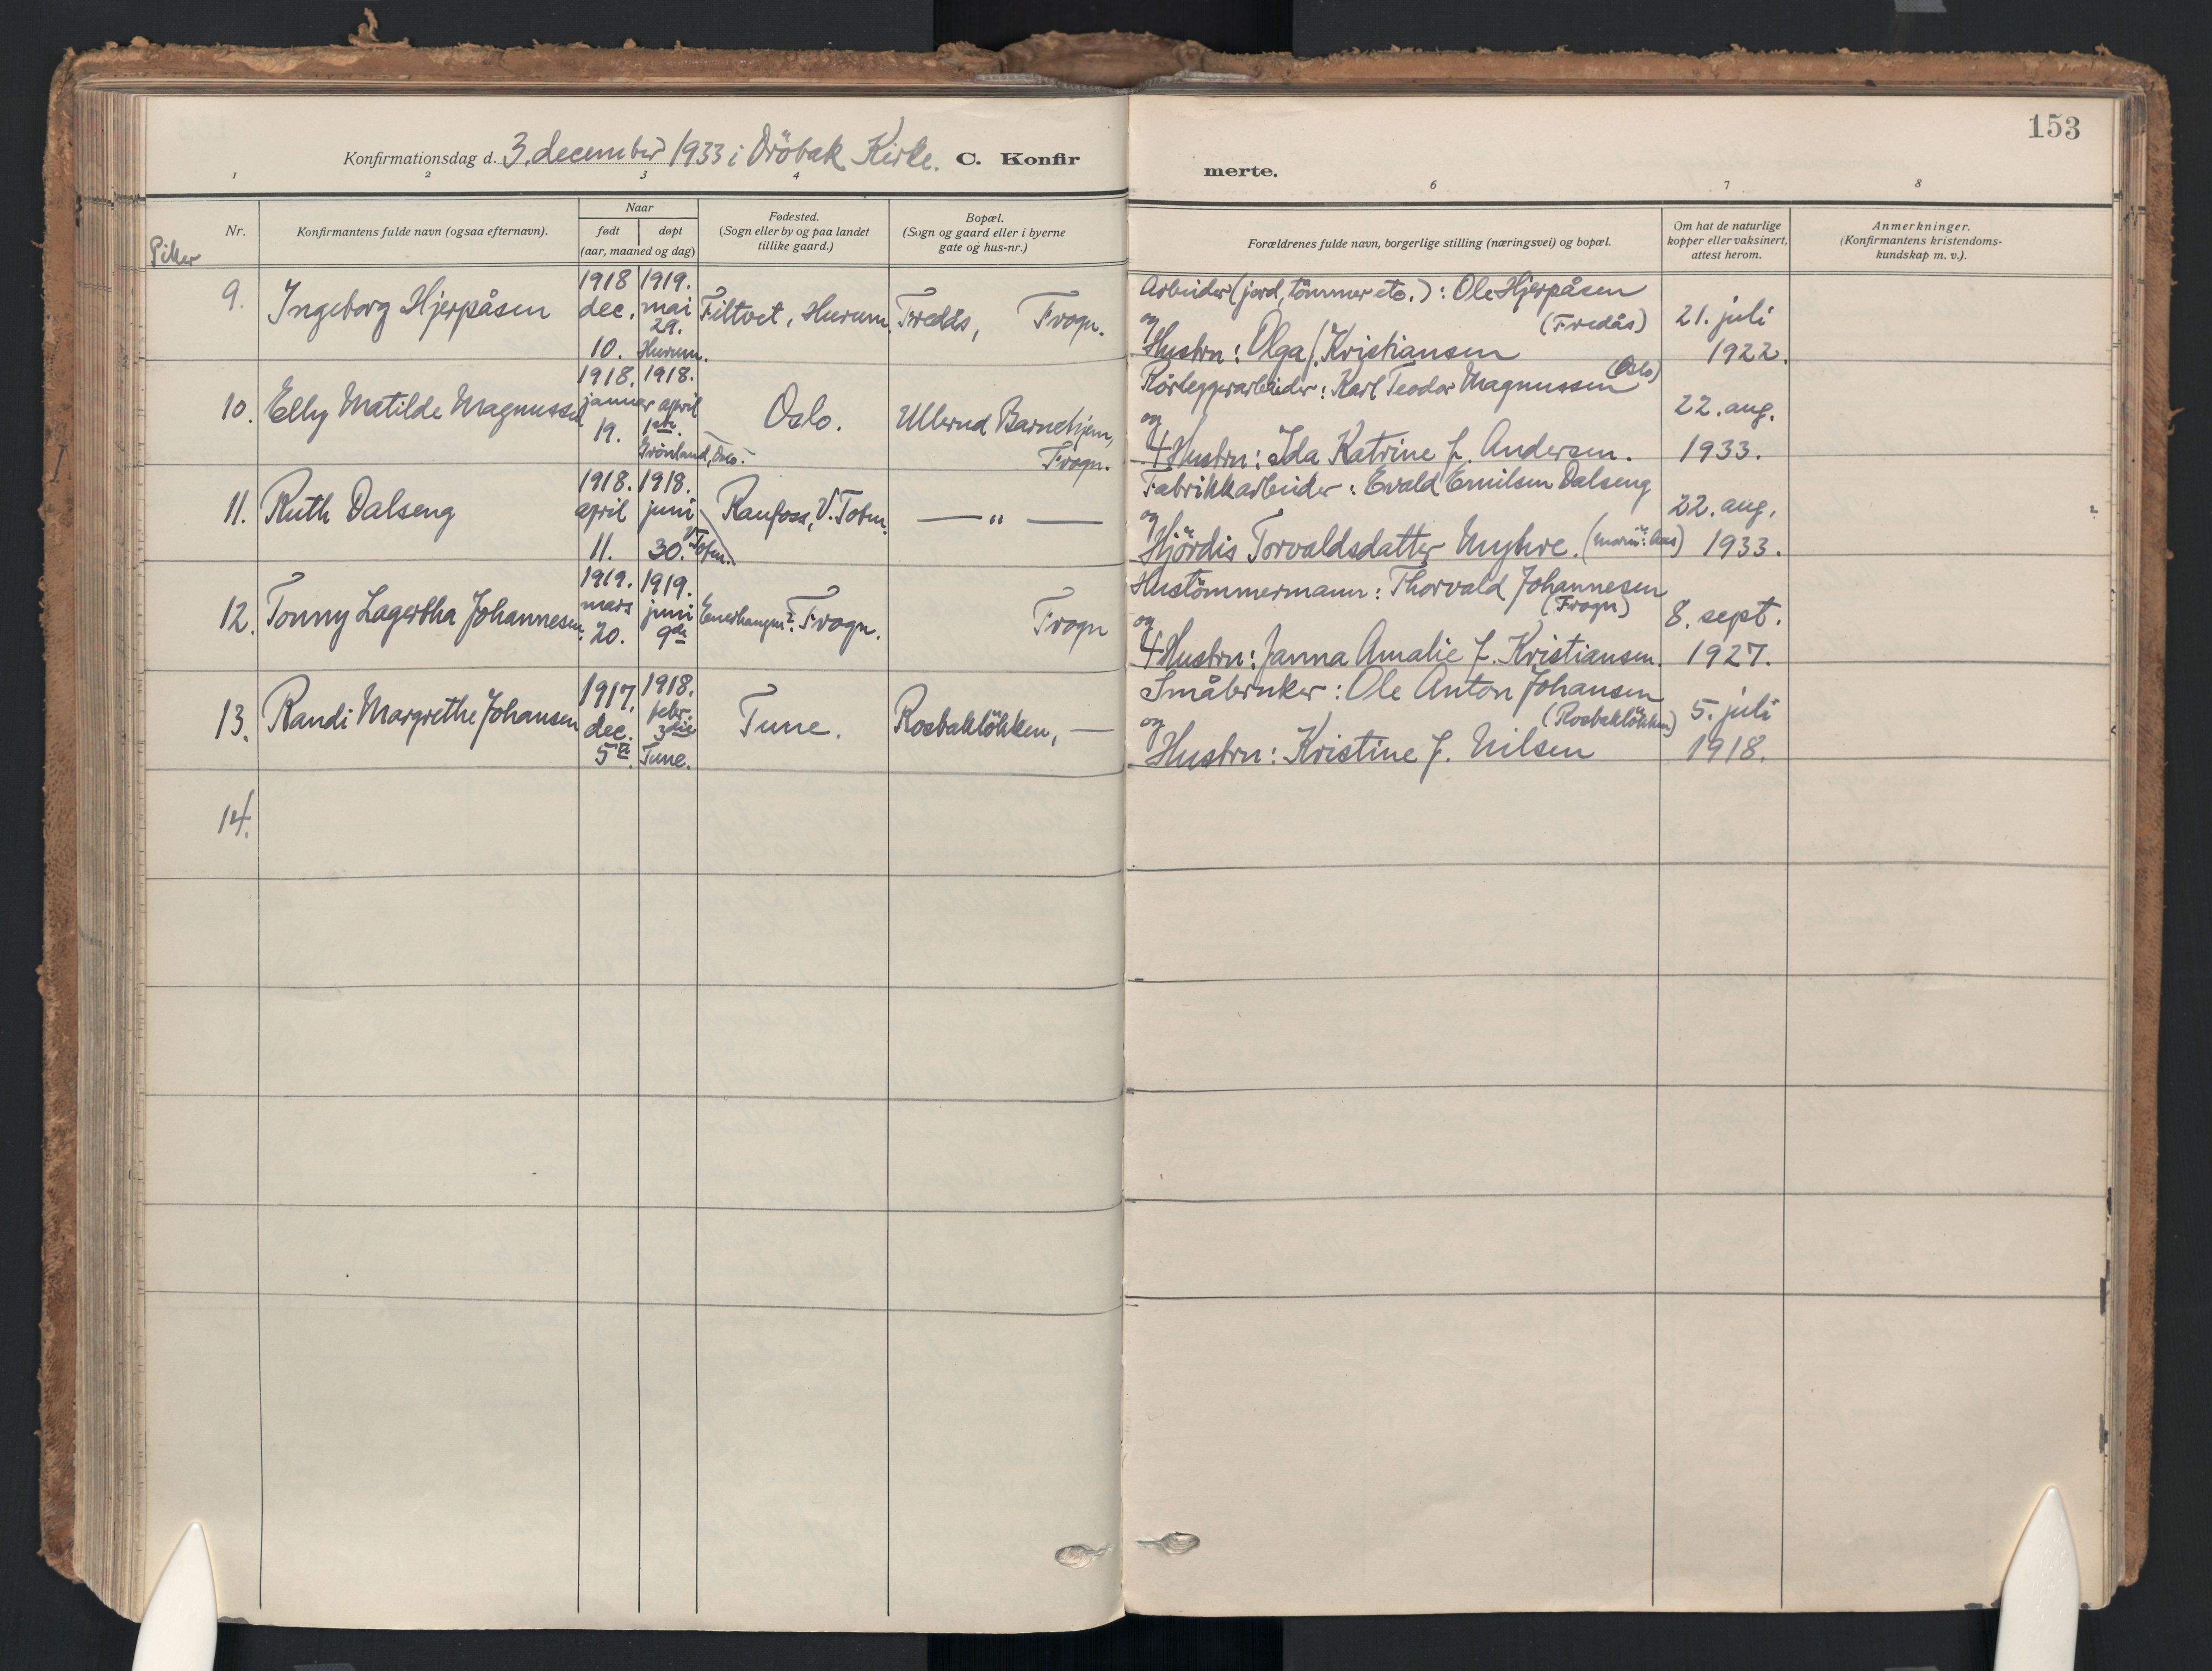 153
Konfirmationsdag d. 3. december 1933 i Dröbak Kirke. C. Konfir
merte.
1 2 3 4 6 7 8
Piker
Nr.
Konfirmantens fulde navn (ogsaa efternavn).
Naar
født døpt
(aar, maaned og dag)
Fødested.
(Sogn eller by og paa landet
tillike gaard.)
Bopæl.
(Sogn og gaard eller i byerne
gate og hus-nr.)
Forældrenes fulde navn, borgerlige stilling (næringsvei) og bopæl.
Om hat de naturlige
kopper eller vaksinert,
attest herom.
Anmerkninger.
(Konfirmantens kristendoms-
kundskap m. v.).
9. Ingeborg Hjerpåsen
1918 dec. 10.
1919. mai 29. Hurum.
Filtvet, Hurum.
Fredås, Frogn.
Arbeider (jord, tömmer etc.): Ole Hjerpåsen
og (Fredås)
Hustru: Olga f. Kristiansen
21. juli
1922.
10. Elly Matilde Magnussen
1918. januar 19.
1918. april 1ste. Grönland, Oslo.
Oslo.
Ullerud Barnehjem,
Frogn.
Rörleggerarbeider: Karl Teodor Magnussen (Oslo)
og
Hustru: Ida Katrine f. Andersen.
22. aug.
1933.
11. Ruth Dalseng
1918. april 11.
1918. juni 30. V. Toten.
Raufoss, V. Toten.
— " —
Fabrikkarbeider: Evald Emilsen Dalseng
og
Hjördis Torvaldsdatter Myhre.
22. aug.
1933.
12. Tonny Lagertha Johannesen.
1919. mars 20.
1919. juni 9de
Frogn.
Frogn
Hustömmermann: Thorvald Johannesen
og (Frogn)
Hustru: Janna Amalie f. Kristiansen.
8. sept.
1927.
13. Randi Margrethe Johansen
1917. dec. 5te.
1918. febr. 3die Tune.
Tune.
Rosbaklökken, —
Småbruker: Ole Anton Johansen
og (Rosbaklökken)
Hustru: Kristine f. Nilsen
5. juli
1918.
14.